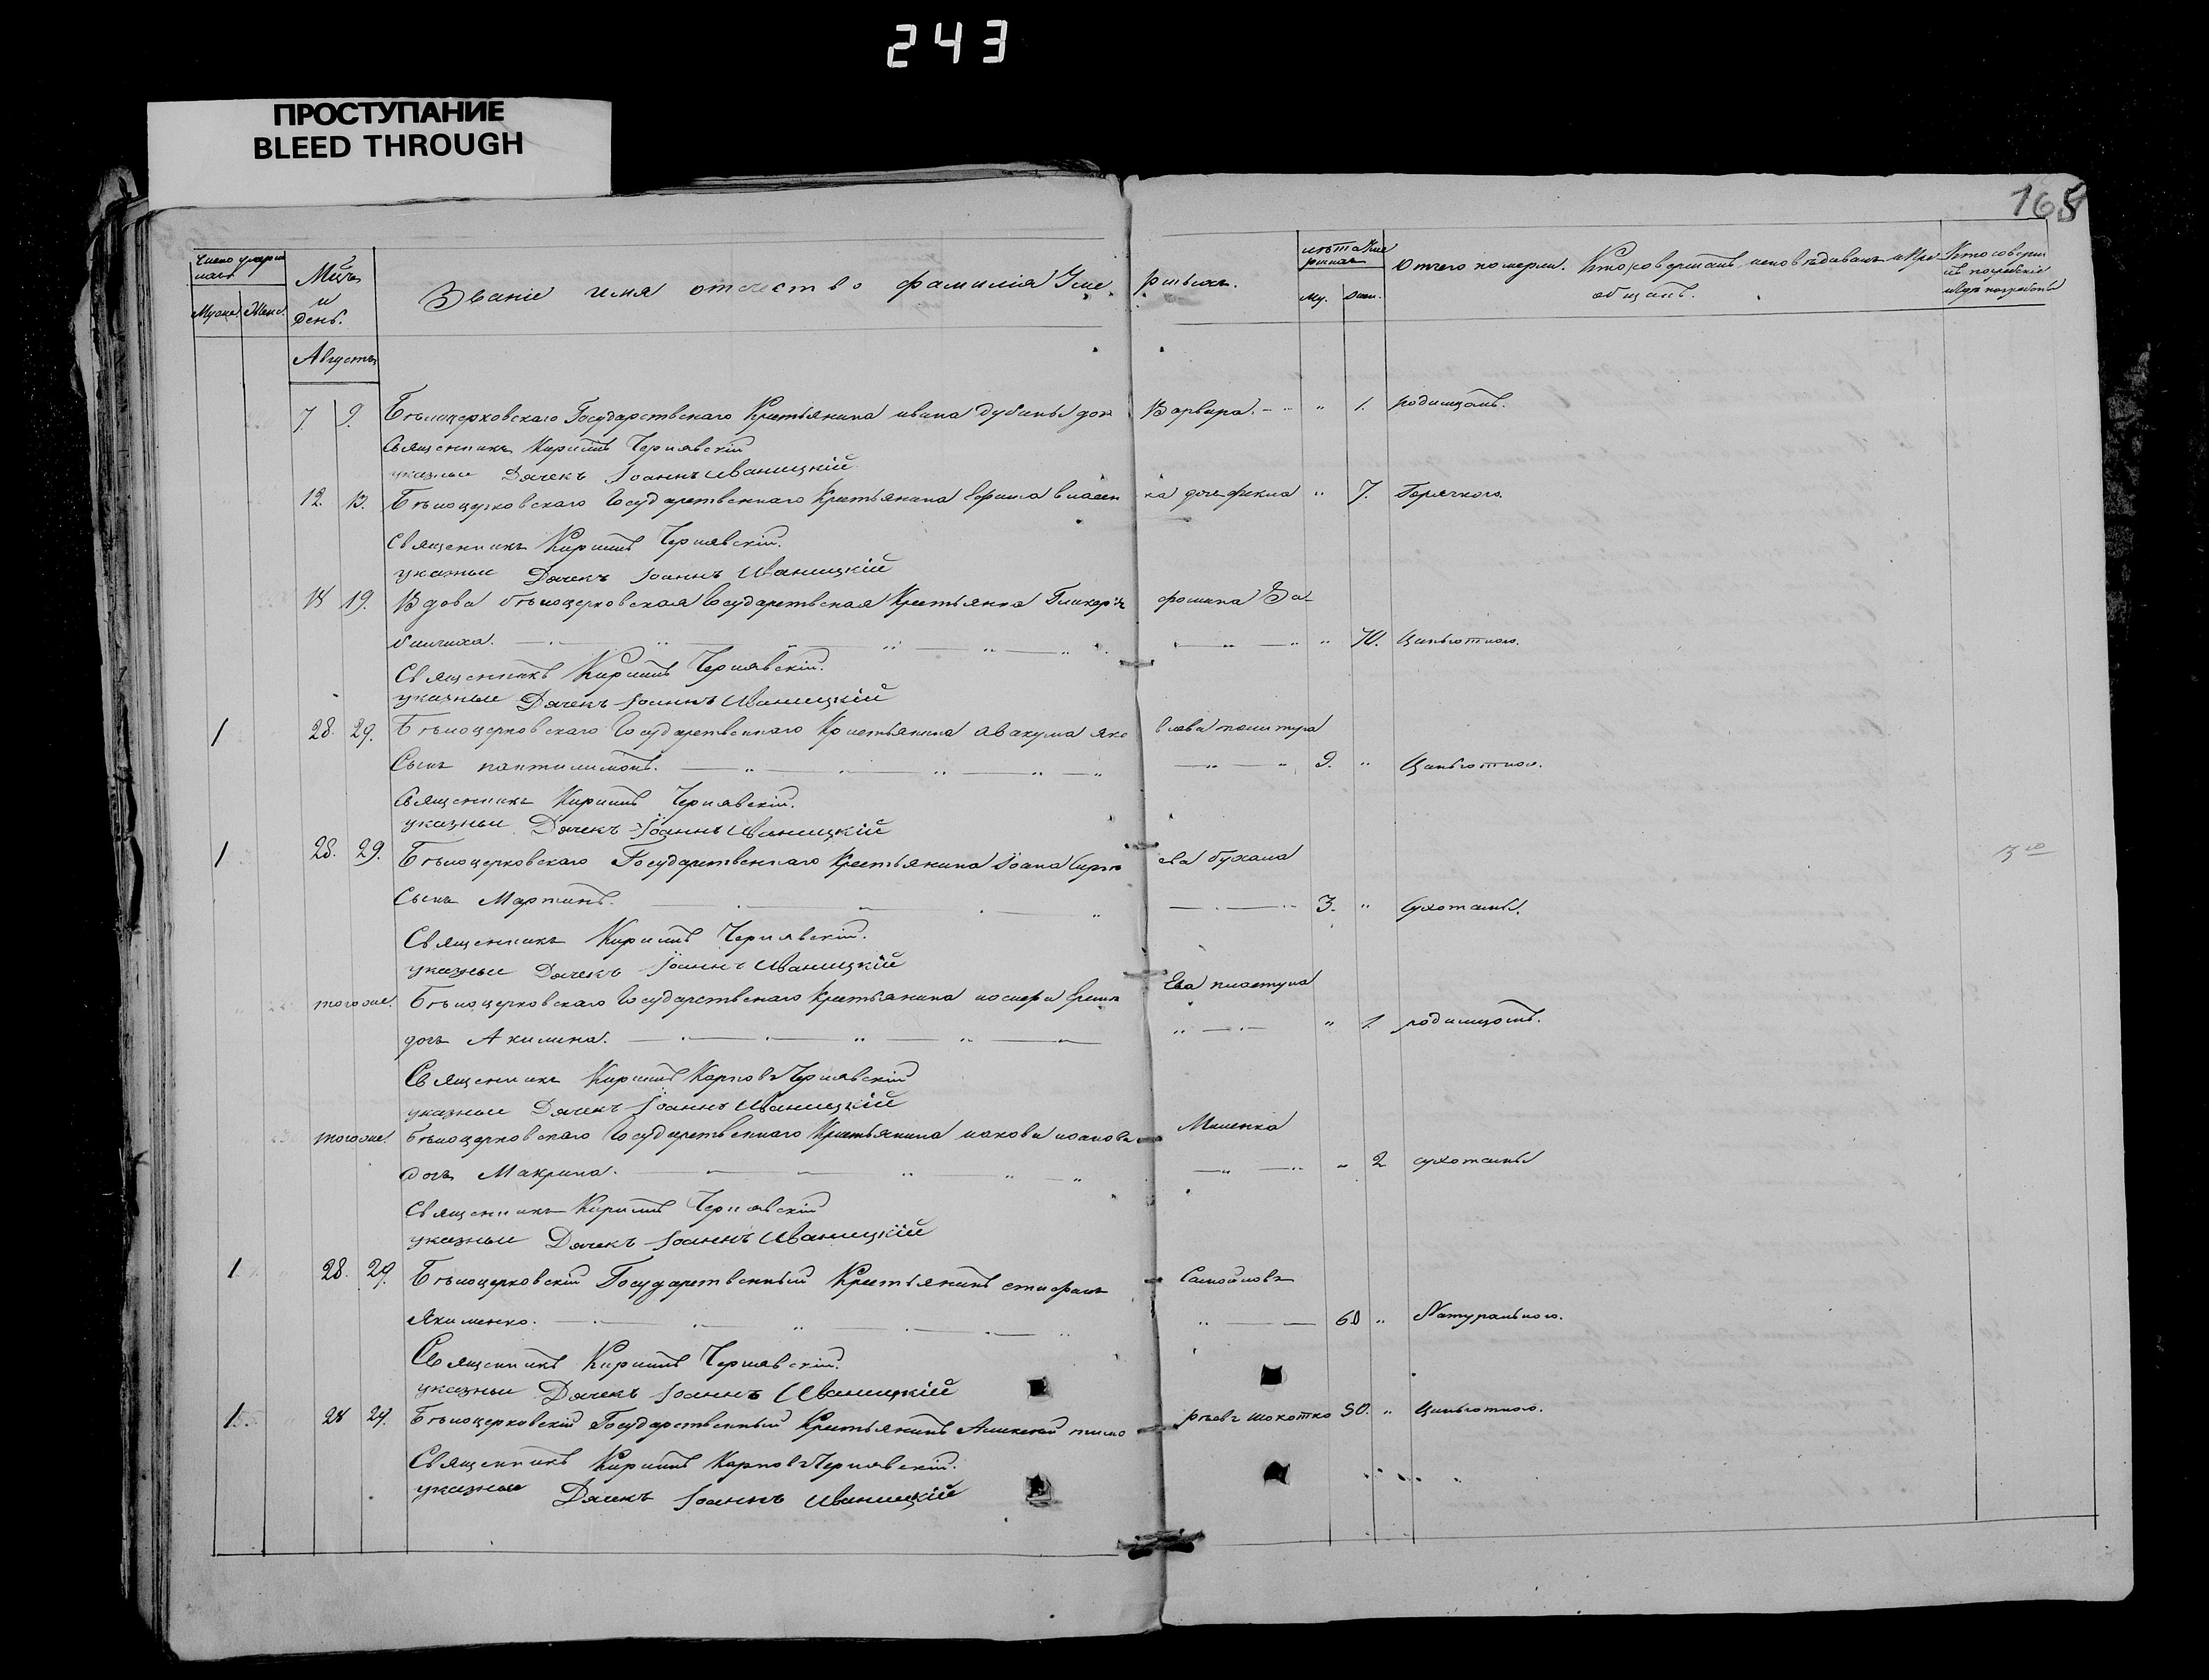 243
ПРОСТУПАНИЕ
BLEED THROUGH
168
Число умерш
Муже. Женс.
Мцъ и день.
Званіе имя отчество фамилія Уме ршихъ.
му. жен.
Отчего померли. Кто совершалъ исповѣдывалъ и прі
общалъ.
Кто соверш
Августъ
7 9. Бѣлоцерковскаго Государственаго Крестьянина ивана дубины дочь Варвара. " 1. родимцомъ.
Священникъ Кирилъ Чернявскій
указный Дячекъ Іоаннъ Иваницкій
12. 13. Бѣлоцерковскаго Государственнаго Крестьянина Ефима власен ка дочь фекла " 7. Горячкою.
Священникъ Кирилъ Чернявскій.
указный Дячекъ Іоаннъ Иваницкій
18 19. Вдова бѣлоцерковская Государственая Крестьянка Гликерія фомина За
билиха. " 70. Цынготною.
Священникъ Кирилъ Чернявскій.
указный Дячекъ Іоаннъ Иваницкій
1 28. 29. Бѣлоцерковскаго Государственнаго Крестьянина авакума яко влева
Сынъ пантилимонъ. 9. " Цынготною.
Священникъ Кирилъ Чернявскій.
указный Дячекъ Іоаннъ Иваницкій
1 28. 29. Бѣлоцерковскаго Государственнаго Крестьянина Іоана Сергѣ ева бухала
Сынъ Мартинъ. 3. " Сухотами.
Священникъ Кирилъ Чернявскій.
указный Дячекъ Іоаннъ Иваницкій
тогоже. Бѣлоцерковскаго Государственаго Крестьянина иосифа Ерем Ева пластуна
дочь Акилина. " 1. родимцомъ.
Священникъ Кирилъ Карповъ Чернявскій
указный Дячекъ Іоаннъ Иваницкій
тогоже. Бѣлоцерковскаго Государственнаго Крестьянина иакова иоанова Миленка
дочь Макрина. " 2 сухотами
Священникъ Кирилъ Чернявскій
указный Дячекъ Іоаннъ Иваницкій
1 28. 29. Бѣлоцерковскій Государственный Крестьянинъ стифанъ Самойловъ
Якименко. 60 " Натуральною.
Священникъ Кирилъ Чернявскій.
указный Дячекъ Іоаннъ Иваницкій
1. 28 29. Бѣлоцерковскій Государственный Крестьянинъ Алексей тимо фѣевъ шокотко 50. " Цынготною.
Священникъ Кирилъ Карповъ Чернявскій.
указный Дячекъ Іоаннъ Иваницкій